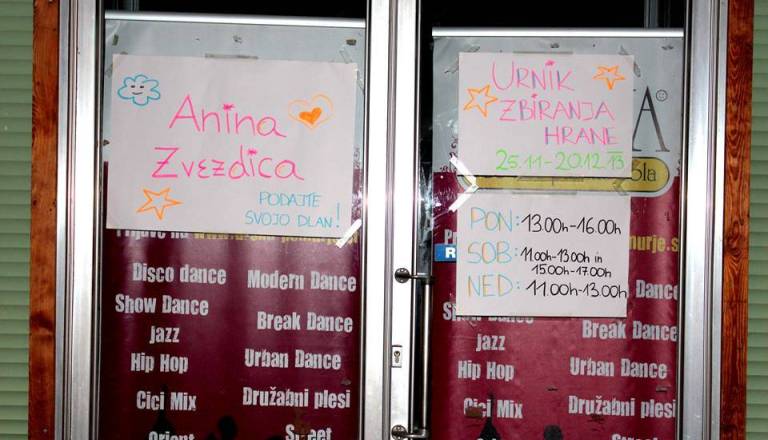 Anina
Zvezdica
PODAJTE
SVOJO DLAN!
Disco dance
Modern Dance
Show Dance
jazz
Break Dance
Hip Hop
Urban Dance
Cici Mix
Družabni plesi
Orient
Street
URNIK
ZBIRANJA
HRANE
25.11-20.12.13
PON: 13.00h-16.00h
SOB: 11.00h-13.00h in
15.00h-17.00h
NED: 11.00h-13.00h
murje.s
Dance
jazz
Break Dance
Hip Hop
Urban Dance
Cici Mix
Družabni plesi
Street